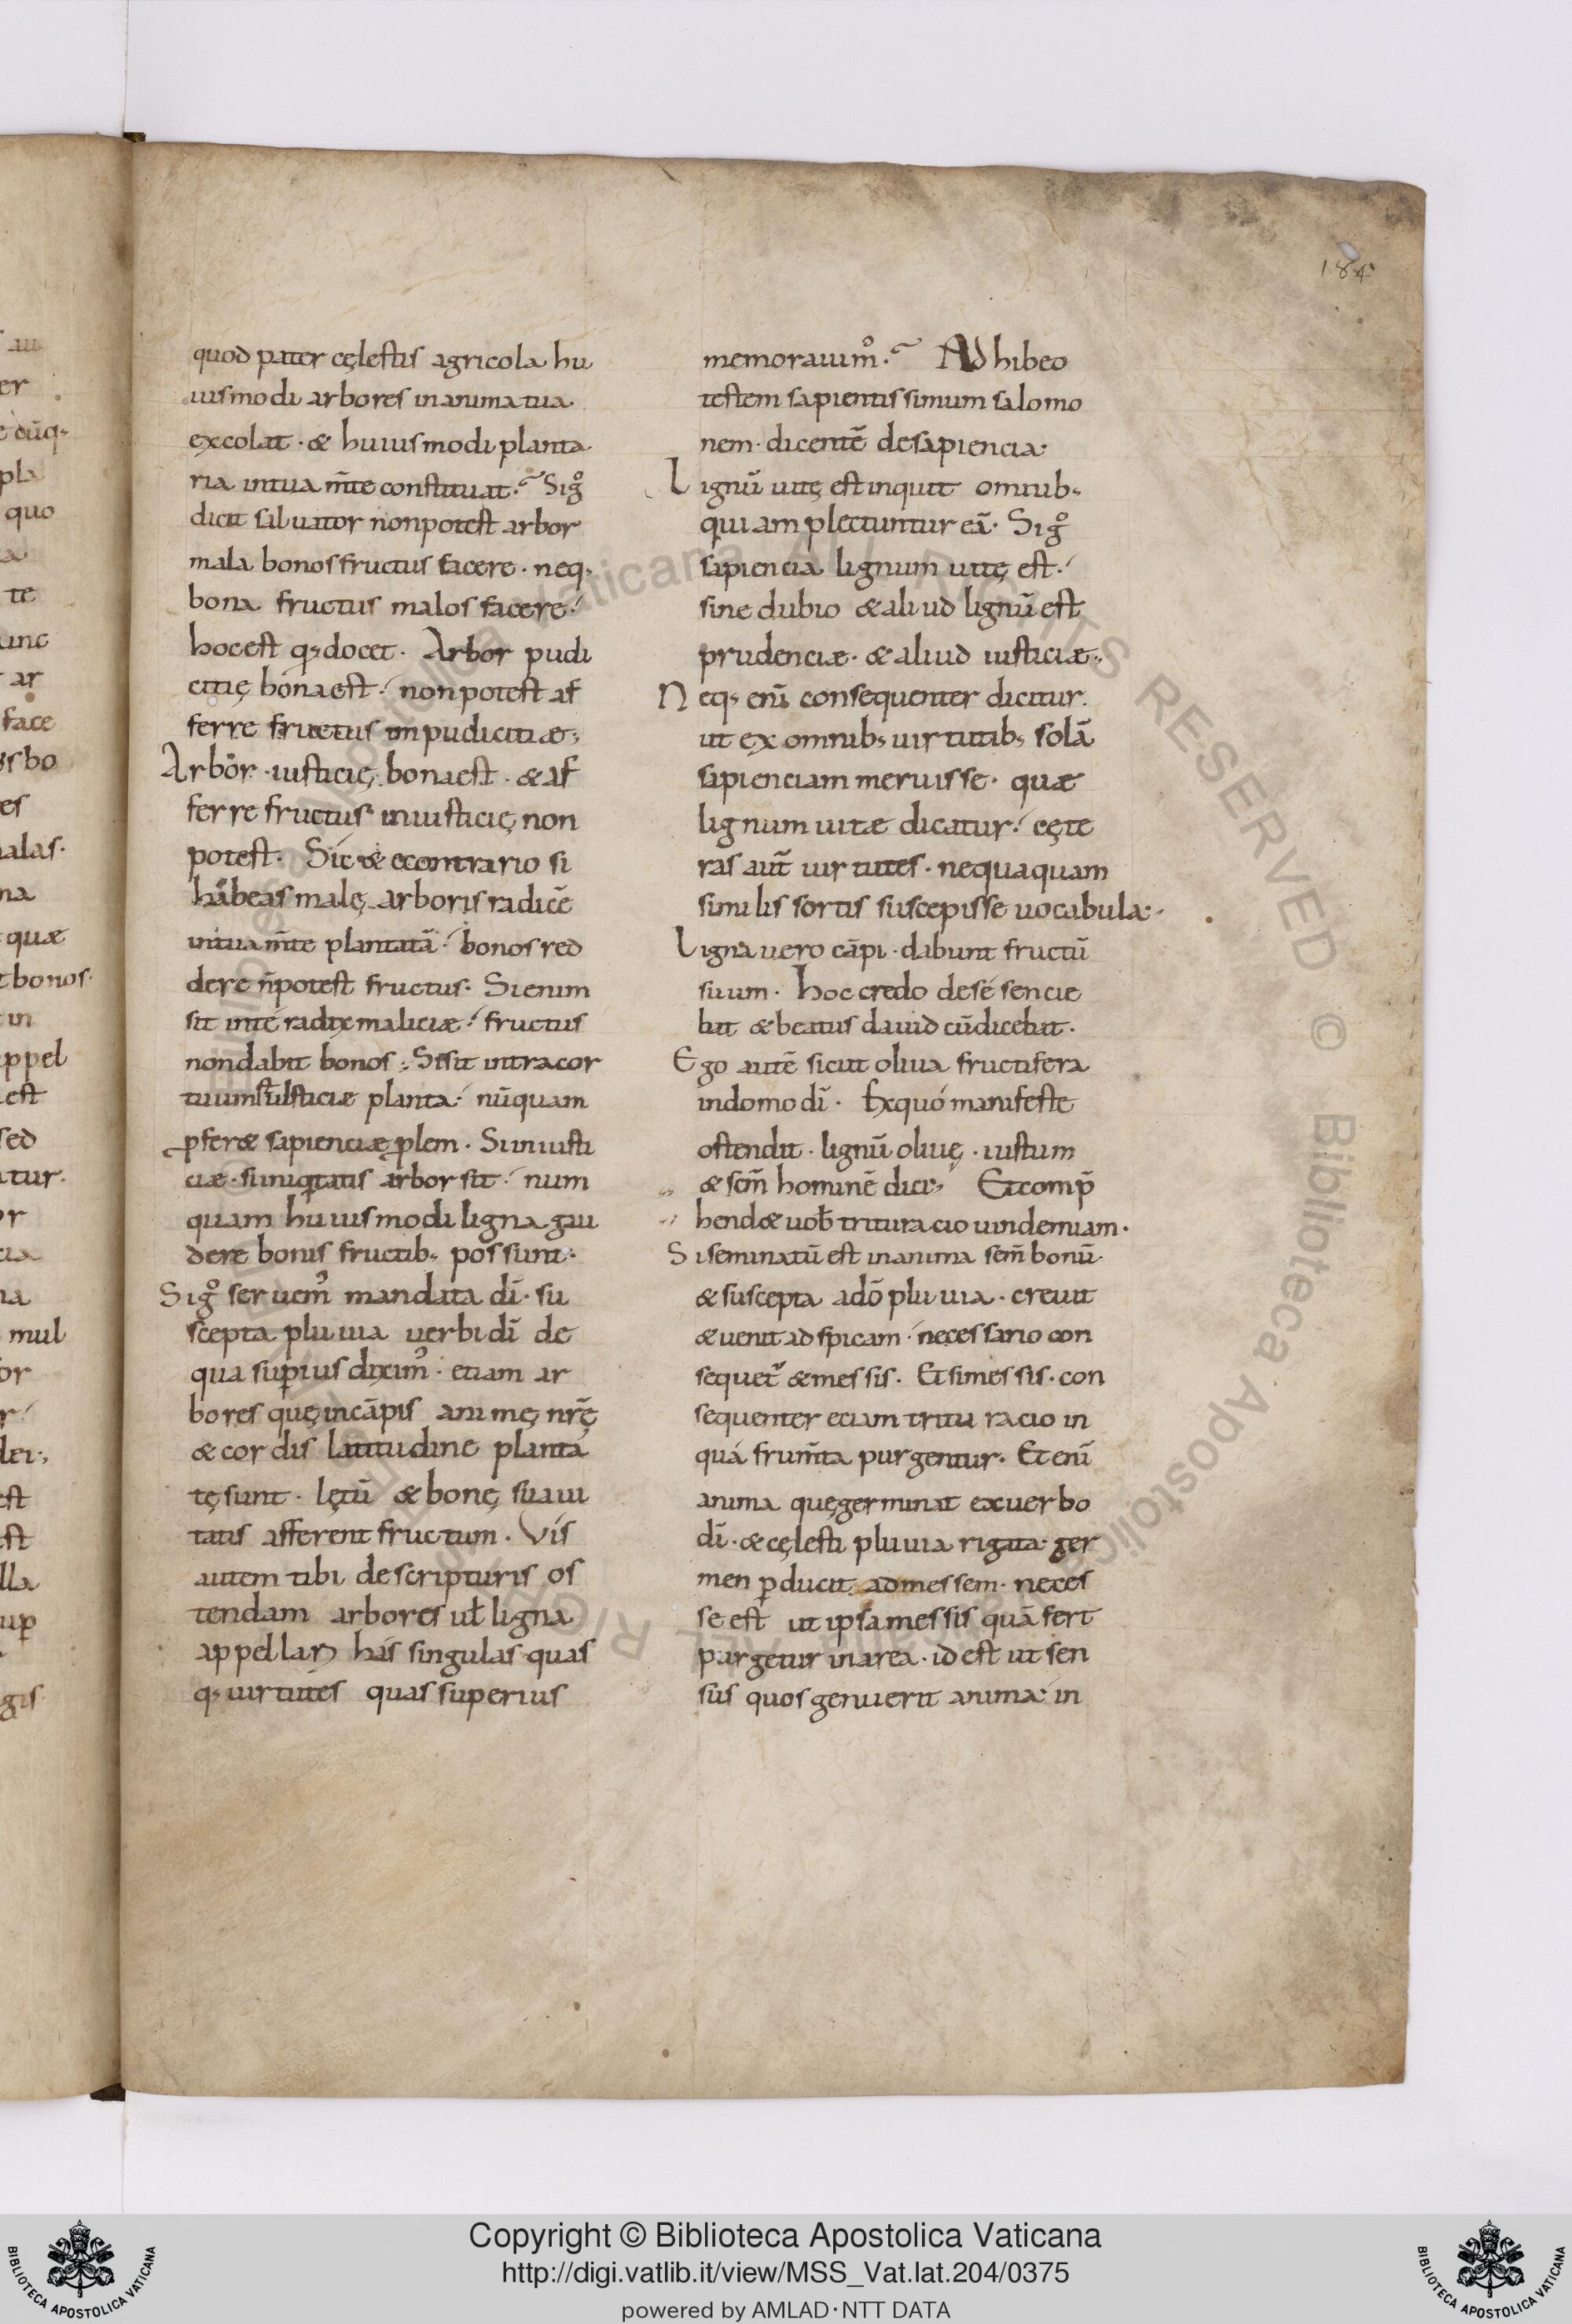 184
quod pater cęlestis agricola hu
iusmodi arbores in anima tua
excolat · & huiusmodi planta
ria in tua m̅te constituat · Sigͦ
dicit saluator non potest arbor
mala bonos fructus facere · neq;
bona fructus malos facere ·
hoc est q; docet · Arbor pudi
citię bona est · non potest af
ferre fructus inpudicitiæ;
Arbor · iusticię bona est · & af
ferre fructus iniusticię non
potest · Sic & econtrario si
habeas malę arboris radicē
in tua m̅te plantatā · bonos red
dere n̄ potest fructus · Si enim
sit in te radix maliciæ · fructus
non dabit bonos · Si sit intra cor
tuum planta · nūquam
ꝓfer& sapienciæ ꝓlem · Si iniusti
ciæ · si iniqͥtatis arbor sit · num
quam huiusmodi ligna gau
dere bonis fructib; possunt ·
Sigͦ seruem᾽ mandata dī · su
scepta pluuia uerbi dī de
qua suꝑius dixim᾽ · etiam ar
bores quę in cāpis animę nr̄ę
& cordis latitudine planta
tę sunt · lętū & bonę suaui
tatis afferent fructum · Vis
autem tibi de scripturis os
tendam arbores uł ligna
appellari has singulas quas
q; uirtutes quas superius
memorauimͦ · Adhibeo
testem sapientissimum salomo
nem · dicentē de sapiencia:
Lignū uitę est inquit omnib;
qui amplectuntur eā · Sigͦ
sapiencia lignum uitę est ·
sine dubio & aliud lignū est
prudenciæ · & aliud iusticiæ ·
Neq; enī consequenter dicitur ·
ut ex omnib; uirtutib; solā
sapienciam meruisse · quæ
lignum uitæ dicatur · cęte
ras aut̄ uirtutes · nequaquam
similis sortis suscepisse uocabula ·
Ligna uero cāpi · dabunt fructū
suum · hoc credo de se sencie
bat & beatus dauid cū dicebat ·
Ego autē sicut oliua fructifera
in domo dī · Ex quo manifeste
ostendit · lignū oliuę · iustum
& sc̄m hominē dici; Et comp̄
hend& uob̄ trituracio uindemiam ·
Si seminatū est in anima sem̄ bonū ·
& suscepta a dō pluuia · creuit
& uenit ad spicam · necessario con
sequet᾽ & messis · Et si messis · con
sequenter eciam trituracio in
qua frum̄ta purgentur · Et enī
anima quę germinat ex uerbo
dī · & cęlesti pluuia rigata · ger
men ꝑducit ad messem · neces
se est ut ipsa messis quā fert
purgetur in area · id est ut sen
sus quos genuerit anima · in
Copyright © Biblioteca Apostolica Vaticana
http://digi.vatlib.it/view/MSS_Vat.lat.204/0375
powered by AMLAD·NTT DATA
BIBLIOTECA APOSTOLICA VATICANA
BIBLIOTECA APOSTOLICA VATICANA